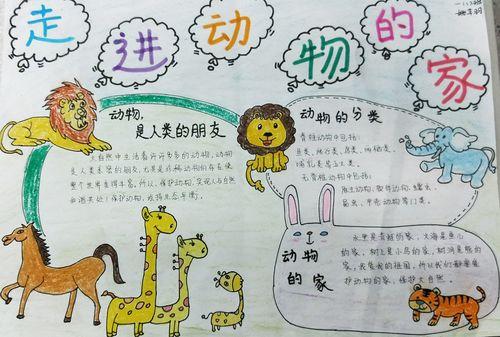 走进动物的家
动物，
是人类的朋友
大自然中生活着许许多多的动物，动物
是人类亲密的朋友，尤其是珍稀动物的存在使
整个世界变得丰富。所以，保护动物，实现人与自然
动物的分类
脊椎动物中包括：
鱼类、爬行类、鸟类、两栖类、
哺乳类等五大类。
无脊椎动物中包括：
原生动物、软体动物、蠕虫、
昆虫、甲壳动物等门类。
动物
的家
水里是青蛙的家，大海是鱼儿
的家，树上是小鸟的家，树洞是熊的
家，我爱我的祖国，所以我们都要爱
护动物的家，保护大自然。